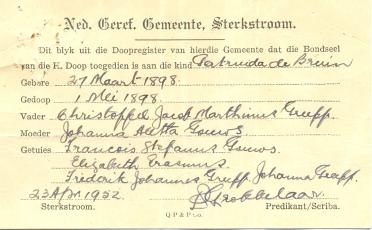 Ned. Geref. Gemeente, Sterkstroom.
Dit blyk uit die Doopregister van hierdie Gemeente dat die Bondseel
van die H. Doop toegedien is aan die kind Petruida de Bruin
Gebore 27 Maart 1898.
Gedoop 1 Mei 1898.
Vader Christoffel Jacob Marthinus Greeff.
Moeder Johanna Aletta Gouws
Getuies Francois Stefanus Gouws.
Elizabeth Erasmus
Frederik Johannes Greeff. Johanna Greeff.
23 Apr. 1952 Grobbelaar.
Sterkstroom. Predikant/Scriba.
Q.P. & P. Co.